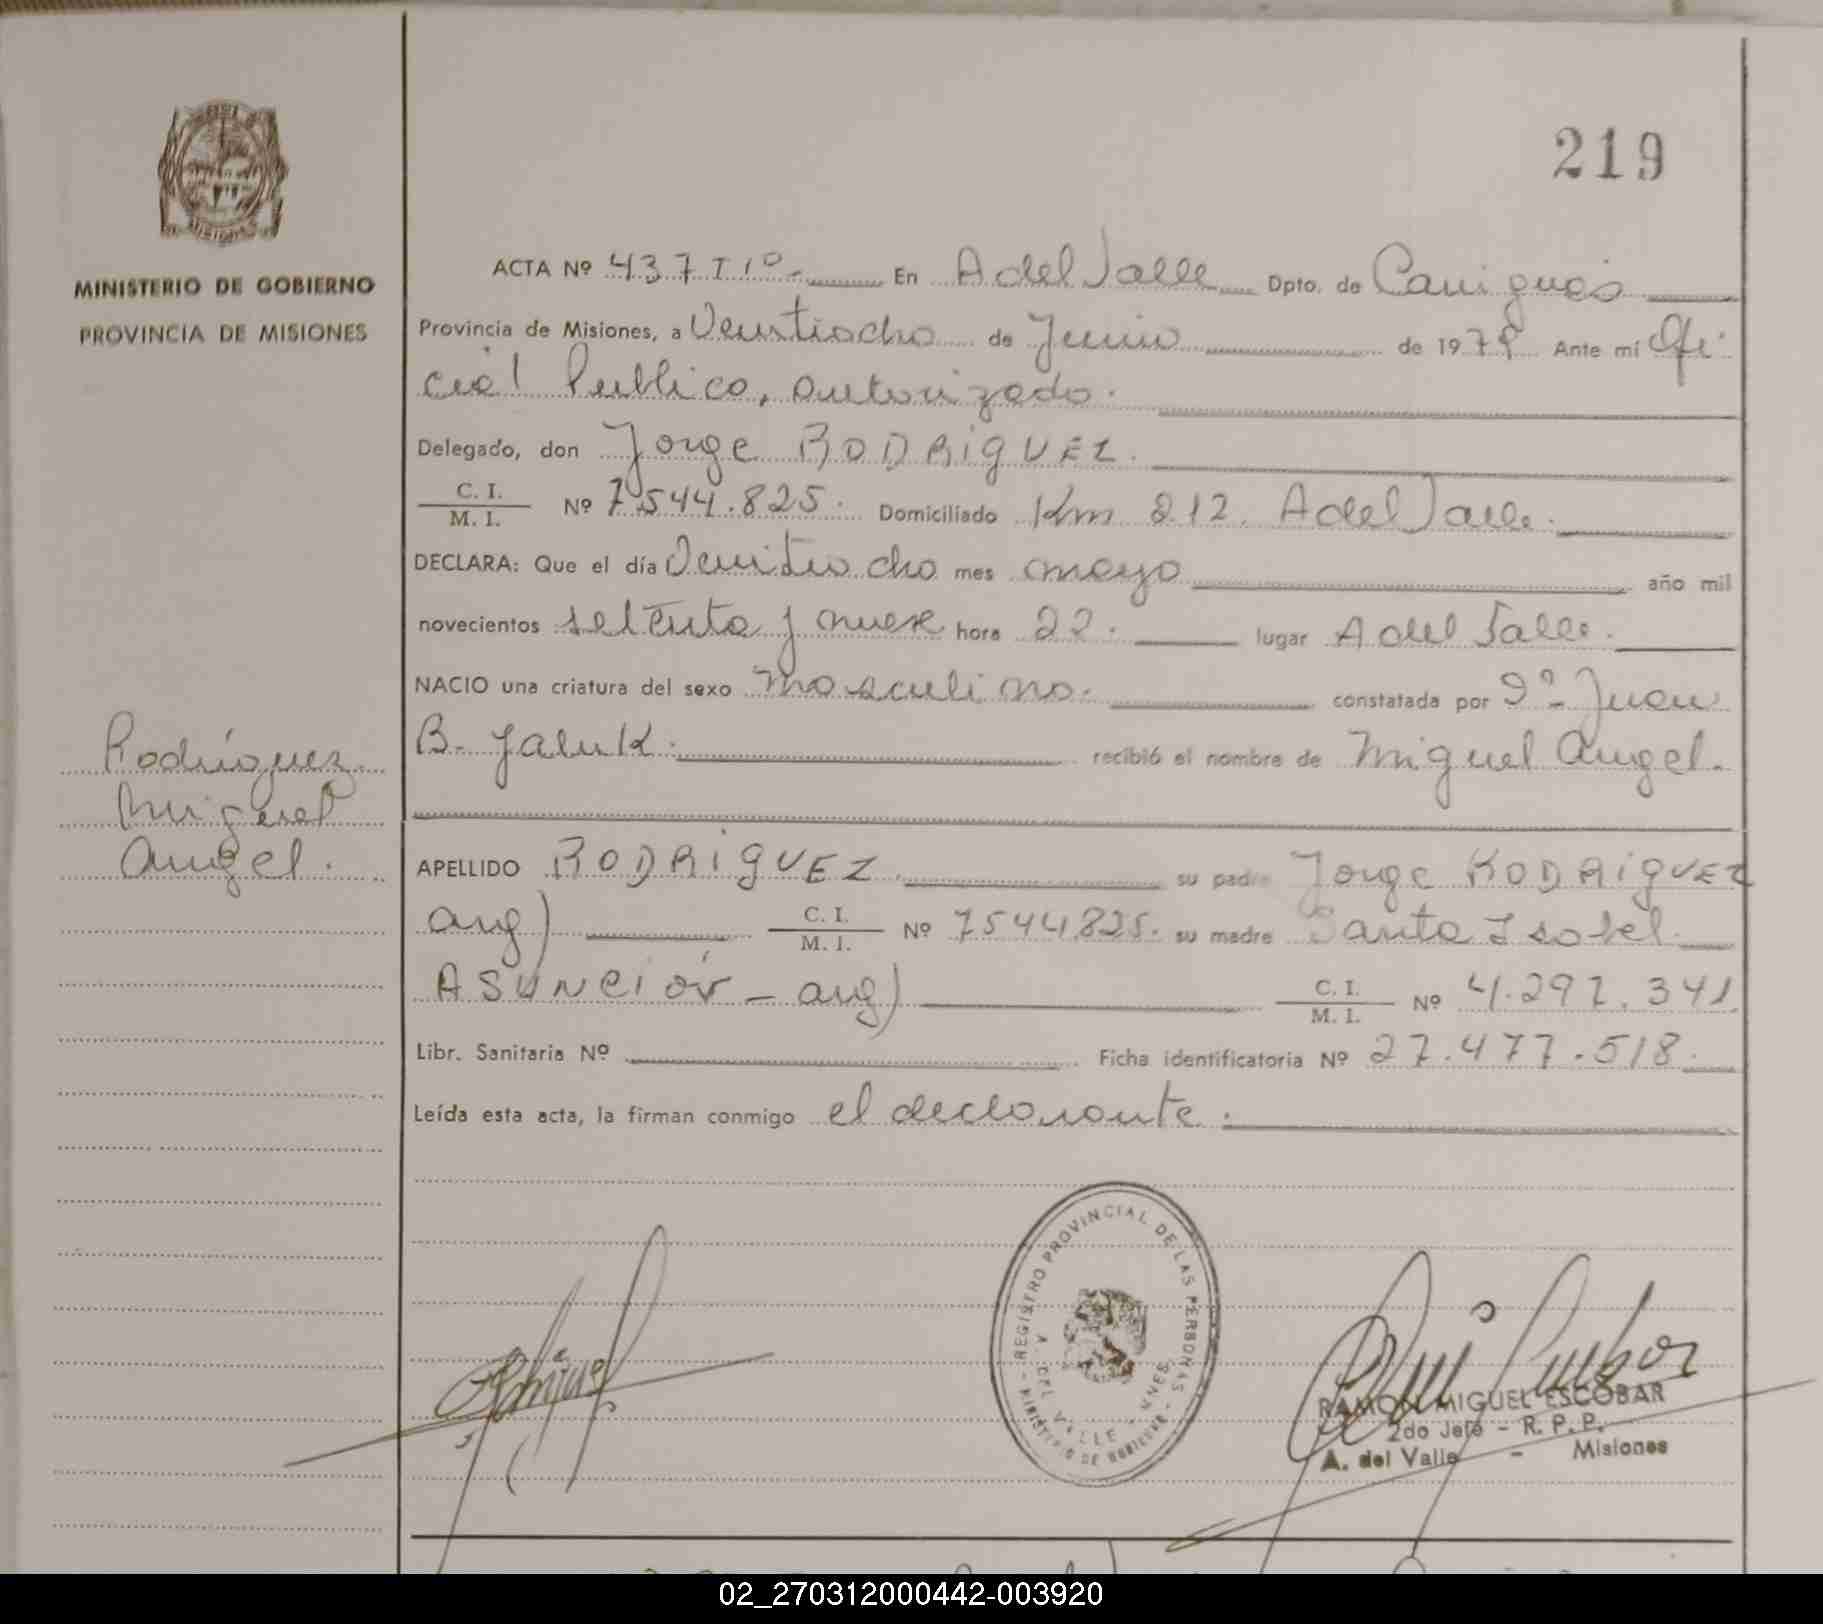 219
MINISTERIO DE GOBIERNO
PROVINCIA DE MISIONES
ACTA Nº 437 T 1º. En A del Valle Dpto. de Cainguás
Provincia de Misiones, a Veintiocho de Junio de 1979 Ante mí Ofi
cial Publico, autorizado.
Delegado, don Jorge RODRIGUEZ.
C. I.
M. I. Nº 7.544.825. Domiciliado Km 212. A del Valle.
DECLARA: Que el día Veintiocho mes mayo año mil
novecientos setenta y nueve hora 22. lugar A del Valle.
NACIO una criatura del sexo masculino. constatada por Juan
B. recibió el nombre de Miguel Angel.
Rodríguez
Miguel
Angel.
APELLIDO RODRIGUEZ su padre Jorge RODRIGUEZ
arg) C. I.
M. I. Nº 7544.825. su madre Santa Isabel
ASUNCIÓN - arg) C. I.
M. I. Nº 4.292.341
Libr. Sanitaria Nº Ficha identificatoria Nº 27.477.518.
Leída esta acta, la firman conmigo el declarante.
REGISTRO PROVINCIAL DE LAS PERSONAS
MINISTERIO DE GOBIERNO
A. DEL VALLE - MNES
RAMON MIGUEL ESCOBAR
2do Jefe - R. P. P.
A. del Valle - Misiones
02_270312000442-003920